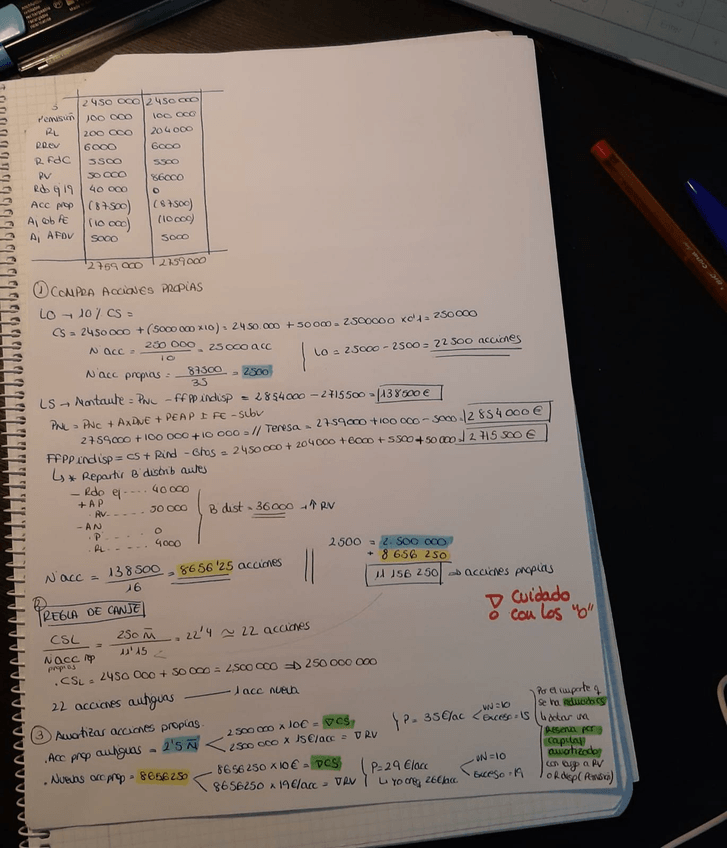 2450 000 2450 000
100 000 100 000
RL 200 000 204000
RREV 6000 6000
R FdC 5500 5500
RV 50 000 86000
Rdo ej 19 40 000 0
Acc prop (87500) (87500)
Aj cob FE (10 000) (10000)
Aj AFDV 5000 5000
2759 000 2759000
① COMPRA ACCIONES PROPIAS
LO → 10% CS =
CS = 2450000 + (5000 000 x10) = 2450 000 + 50000 = 2500000 x0'1 = 250000
Nºacc = 250 000 / 10 = 25000 acc
LO = 25000 - 2500 = 22 500 acciones
Nºacc propias = 87500 / 35 = 2500
LS → Montante = PNL - FFPP indisp = 2854000 - 2715500 = 138500 €
PNL = PNC + AxDNE + PEAP ± FE - Subv
2759000 + 100 000 + 10 000 = // Teresa = 2759000 + 100 000 - 5000 = 2854000 €
FFPP indisp = CS + Rind - Gtos = 2450000 + 204000 + 6000 + 5500 + 50000 = 2 715 500 €
↳ * Repartir B distrib antes
- Rdo ej ---- 40 000
+ AP
. RV ----- 50 000
B dist = 36000 → ↑ RV
- AN
. P ----- 0
. RL ----- 4000
2500 = 2.500 000
+ 8 656 250
11 156 250 ⇒ acciones propias
Nºacc = 138500 / 16 = 8656'25 acciones
▽ Cuidado
○ con los "0"
② REGLA DE CANJE
CSL / Nacc propias = 250 M / 11'15 = 22'4 ≈ 22 acciones
. CSL = 2450 000 + 50 000 = 2500 000 ⇒ 250 000 000
22 acciones antiguas — 1 acc nueva
③ Amortizar acciones propias.
. Acc prop antiguas = 2'5 M
2500 000 x 10€ = ▽ CS
2500 000 x 15€/acc = ▽ RV
P = 35€/ac
VN = 10
Exceso = 15
. Nuevas acc prop = 8656250
8656250 x 10€ = ▽ CS
8656250 x 19€/acc = ▽ RV
P = 29€/acc
↳ 26€/acc
VN = 10
Exceso = 19
Por el importe q
se ha reducido CS
↳ dotar una
Reserva por
capital
amortizado
con cargo a RV
o R disp